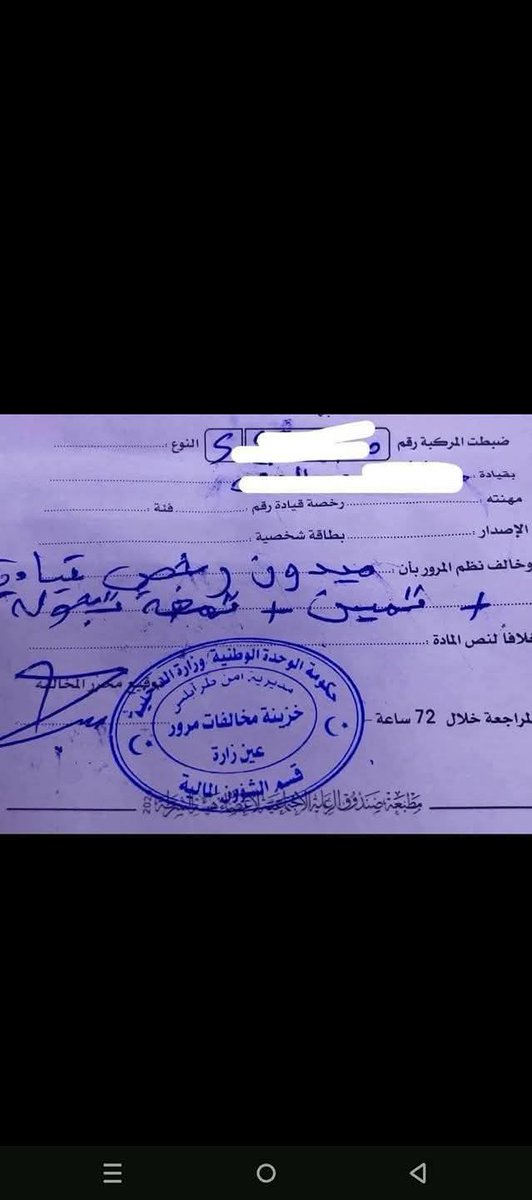 ضبطت المركبة رقم 5 النوع :
بقيادة :
مهنته رخصة قيادة رقم فئة :
الإصدار : بطاقة شخصية :
وخالف نظم المرور بأن بدون رخص قيادة
+ تأمين + قهوة
خلافاً لنص المادة :
توقيع محرر المخالفة
المراجعة خلال 72 ساعة
حكومة الوحدة الوطنية / وزارة الداخلية
مديرية امن طرابلس
خزينة مخالفات مرور
عين زارة
قسم الشؤون المالية
مطبعة صندوق الرعاية الاجتماعية لأعضاء هيئة الشرطة